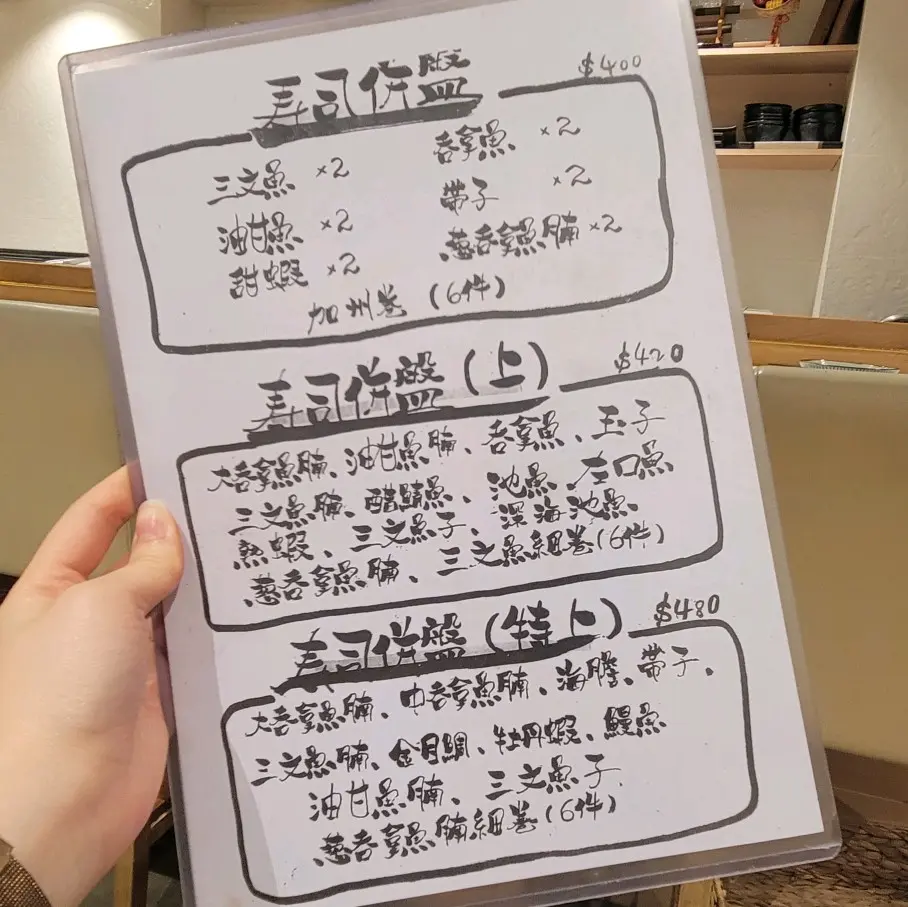 寿司併盤 $400
三文魚 ×2 吞拿魚 ×2
油甘魚 ×2 帶子 ×2
甜蝦 ×2 葱吞拿魚腩 ×2
加州卷 (6件)
寿司併盤 (上) $420
大吞拿魚腩、油甘魚腩、吞拿魚、玉子
三文魚腩、醋鯖魚、池魚、左口魚
熟蝦、三文魚子、深海池魚
葱吞拿魚腩、三文魚細卷 (6件)
寿司併盤 (特上) $480
大吞拿魚腩、中吞拿魚腩、海膽、帶子、
三文魚腩、金目鯛、牡丹蝦、鰻魚
油甘魚腩、三文魚子
葱吞拿魚腩細卷 (6件)